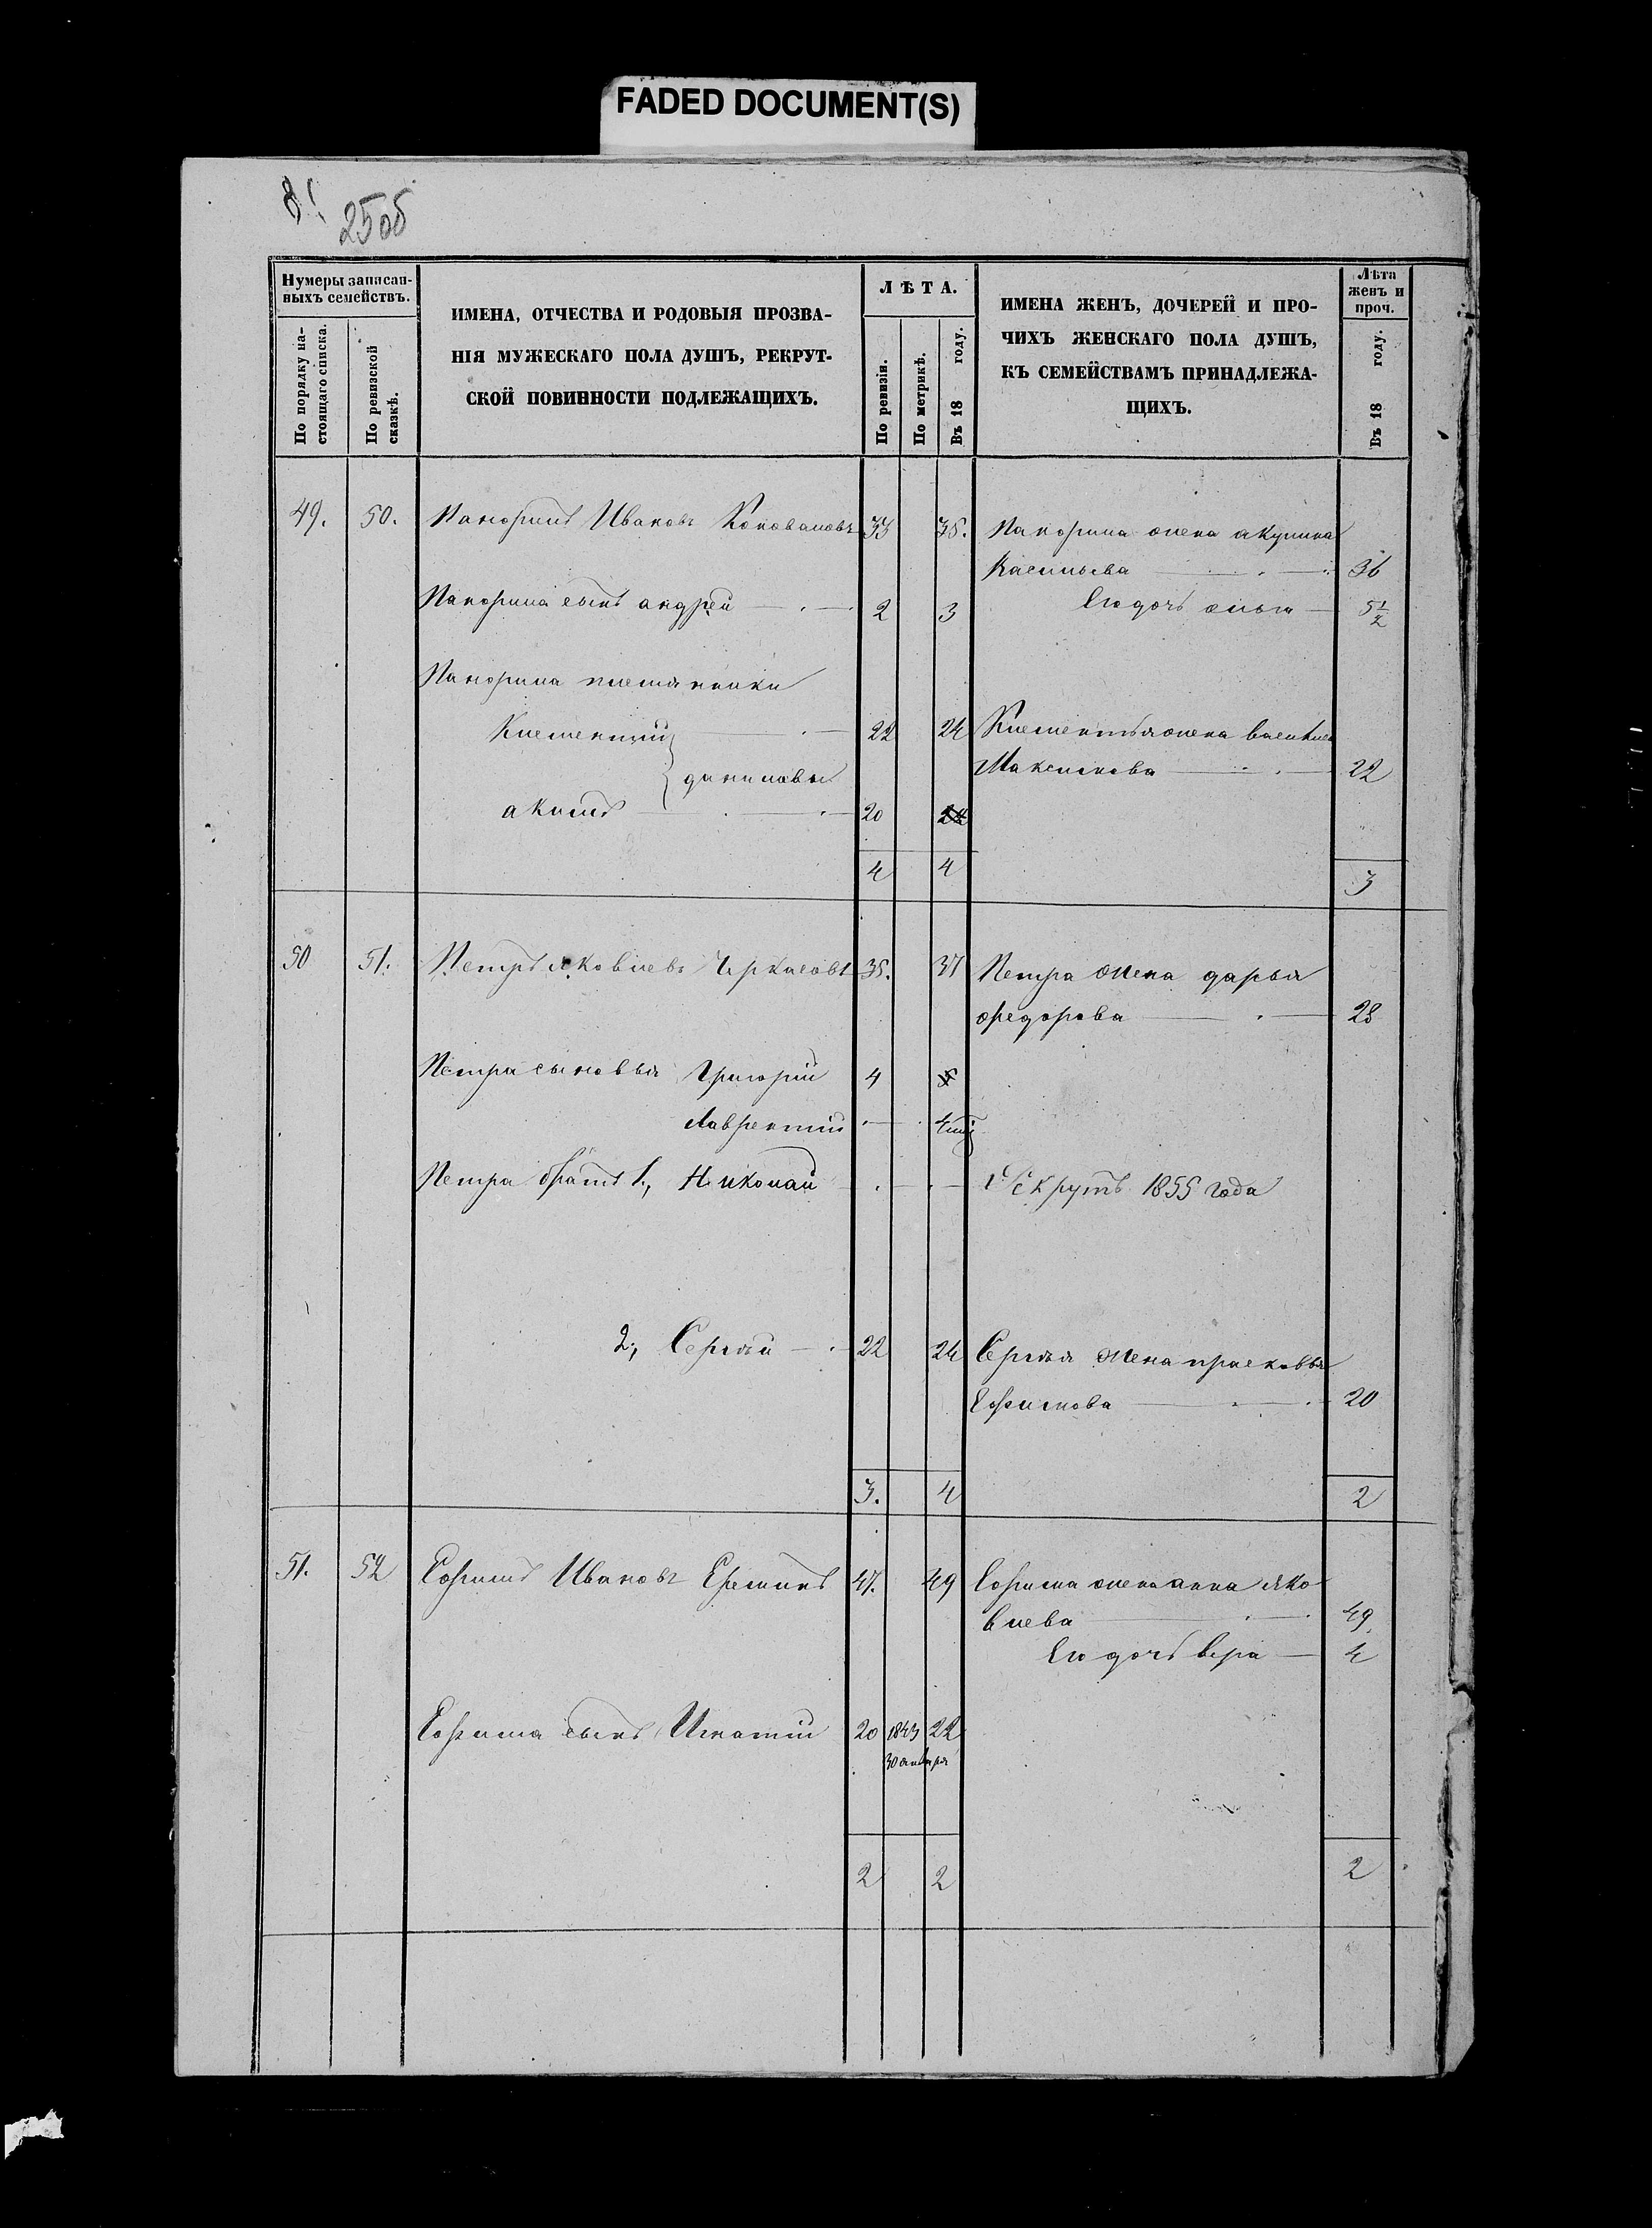 FADED DOCUMENT(S)
81
25об
Нумеры записан-
ныхъ семействъ.
По порядку на-
стоящаго списка.
По ревизской
сказкѣ.
ИМЕНА, ОТЧЕСТВА И РОДОВЫЯ ПРОЗВА-
НІЯ МУЖЕСКАГО ПОЛА ДУШЪ, РЕКРУТ-
СКОЙ ПОВИННОСТИ ПОДЛЕЖАЩИХЪ.
ЛѢТА.
По ревизіи.
По метрикѣ.
Въ 18 году.
ИМЕНА ЖЕНЪ, ДОЧЕРЕЙ И ПРО-
ЧИХЪ ЖЕНСКАГО ПОЛА ДУШЪ,
КЪ СЕМЕЙСТВАМЪ ПРИНАДЛЕЖА-
ЩИХЪ.
Лѣта
женъ и
проч.
Въ 18 году.
49. 50. Панфилъ Ивановъ Коноваловъ 33 35. Панфила жена акулина
Васильева 36
Панфила сынъ андрей 2 3 Его дочь 5 1/2
Панфила племянники
Клементий 22 24 Клементья жена василиса
даниловы Максимова 22
акимъ 20
4 4 3
50 51. Петръ яковлевъ Черкасовъ 35. 37 Петра жена дарья
федорова 28
Петра сыновья Григорій 4
Лаврентий
Петра братъ 1, Николай Рекрутъ 1855 года
2, Сергѣй 22 24 Сергѣя жена прасковья
Ефимова 20
3. 4 2
51. 52 Ефимъ Ивановъ Ереминъ 47. 49 Ефима жена анна яко
влева 49
Его дочь вера 4
Ефима сынъ Игнатий 20 1843 22
30 января
2 2 2